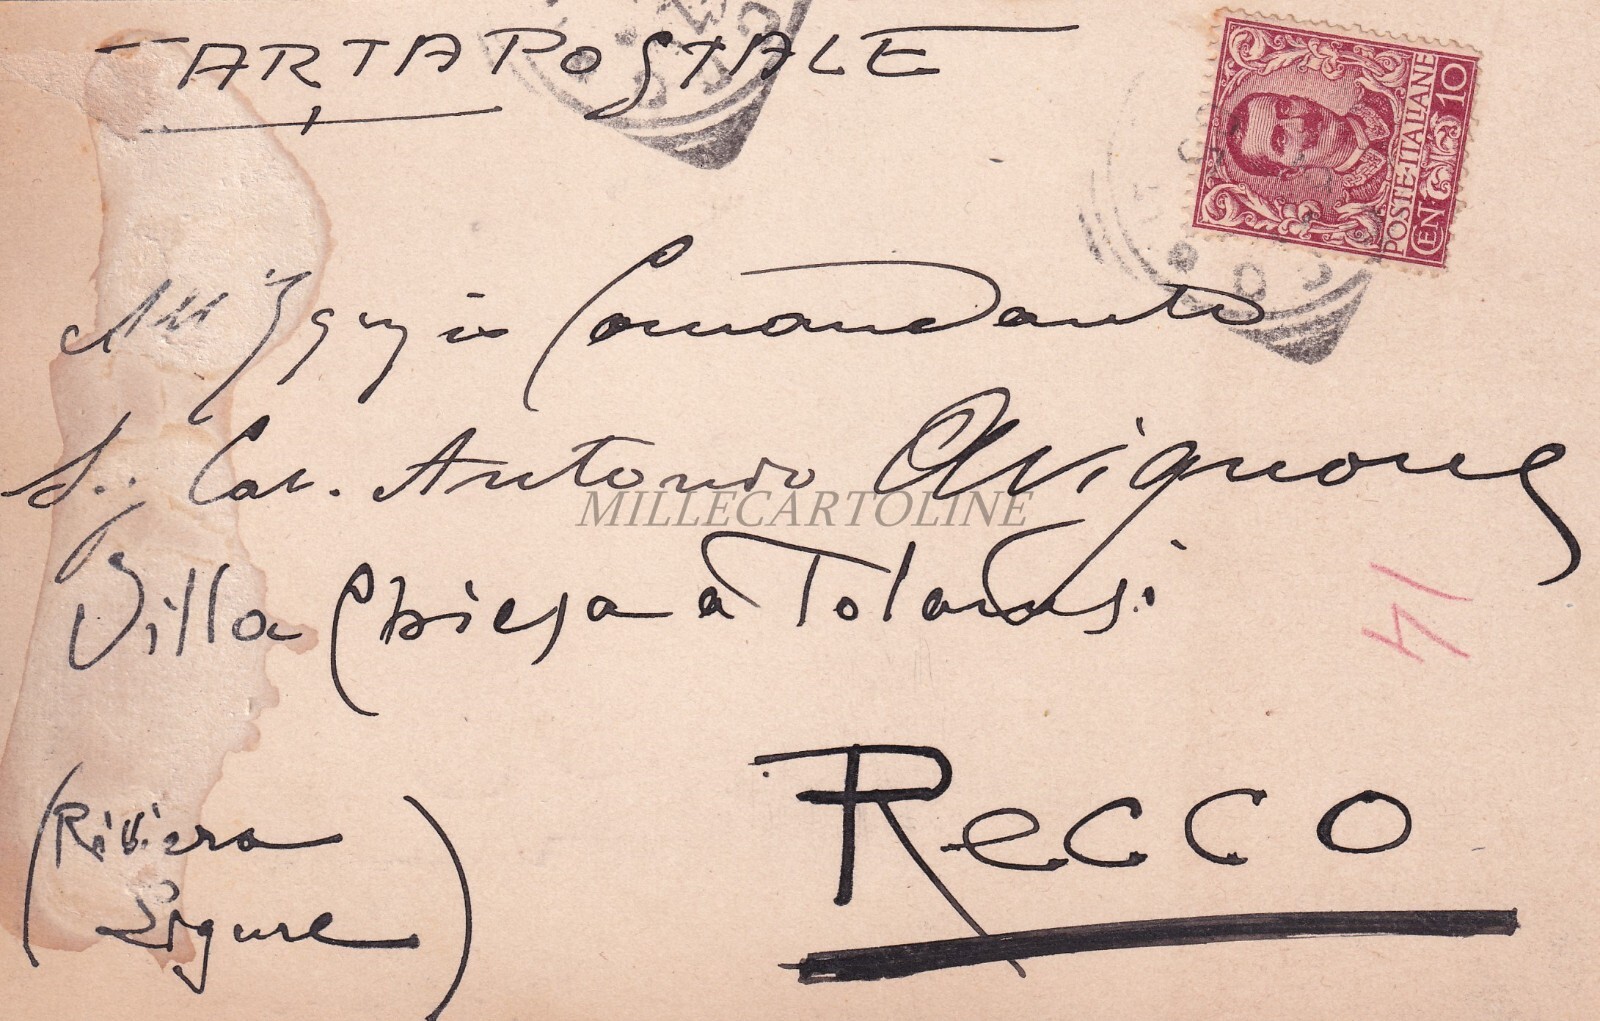 CARTA POSTALE
POSTE·ITALIANE
CEN 10
All' Egregio Comandante
S. Cav. Antonio Avignone
MILLECARTOLINE
Villa Chiesa a
14
RECCO
(Riviera
Ligure)